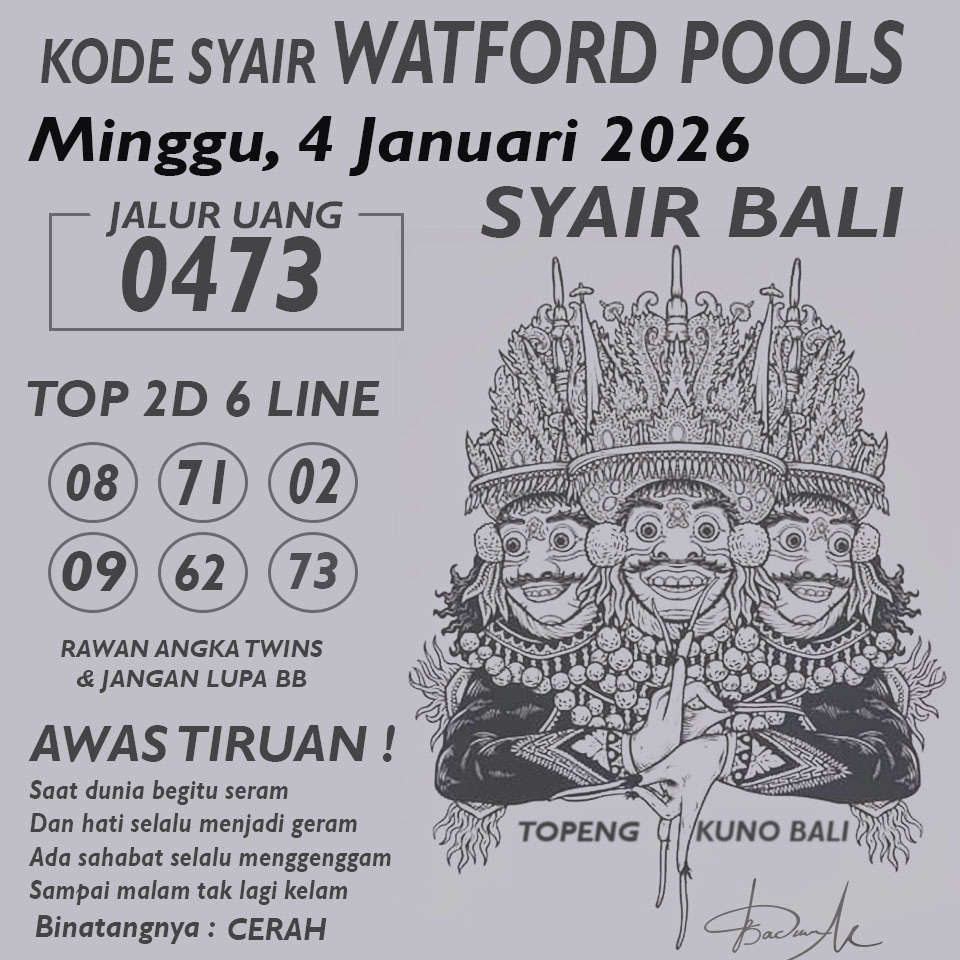 KODE SYAIR WATFORD POOLS
Minggu, 4 Januari 2026
SYAIR BALI
JALUR UANG
0473
TOP 2D 6 LINE
08 71 02
09 62 73
RAWAN ANGKA TWINS
& JANGAN LUPA BB
AWAS TIRUAN !
Saat dunia begitu seram
Dan hati selalu menjadi geram
Ada sahabat selalu menggenggam
Sampai malam tak lagi kelam
Binatangnya : CERAH
TOPENG KUNO BALI